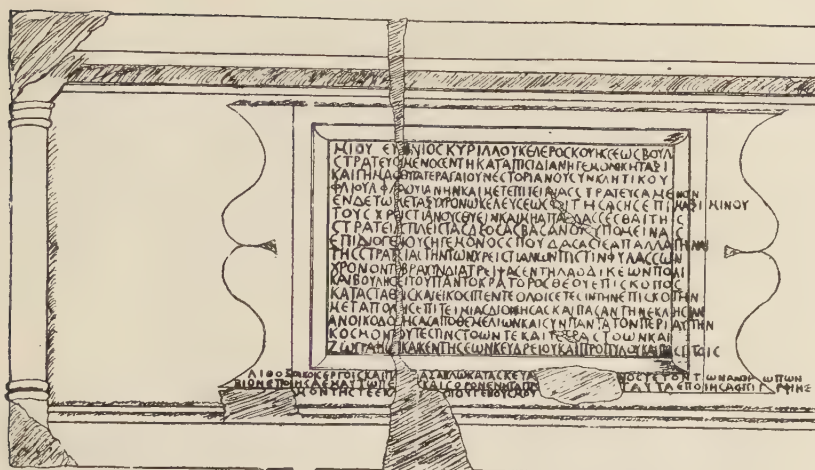 Μ ΙΟΥ ΕΥ ΝΙΟC ΚΥΡΙΛΛΟΥ ΚΕΛΕΡΟC ΚΟΥΗCΕωC ΒΟΥΛ
CΤΡΑΤΕΥC ΜΕΝΟC ΕΝ ΤΗ ΚΑΤΑ ΠΙCΙΔΙΑΝ ΗΓΕΜΟΝΙΚΗ ΤΑΞΙ
ΚΑΙ ΓΗΜΑC ΘΥΓΑΤΕΡΑ ΓΑΙΟΥ ΝΕCΤΟΡΙΑΝΟΥ CΥΝΚΛΗΤΙΚΟΥ
ΦΛ ΙΟΥΛ ΦΛΑΟΥΙΑΝΗΝ ΚΑΙ ΜΕΤ ΕΠΙΤΕΙΜΙΑC CΤΡΑΤΕΥCΑΜΕΝΟΝ
ΕΝ ΔΕ Τω ΜΕΤΑΞΥ ΧΡΟΝω ΚΕΛΕΥCΕωC ΦΟΙΤΗCΑCΗC ΕΠΙ ΜΑΞΙΜΙΝΟΥ
ΤΟΥC ΧΡΕΙCΤΙΑΝΟΥC ΘΥΕΙΝ ΚΑΙ ΜΗ ΑΠΑΛΛΑCCΕCΘΑΙ ΤΗC
CΤΡΑΤΕΙΑC ΠΛΕΙCΤΑC ΔΕ ΟCΑC ΒΑCΑΝΟΥC ΥΠΟΜΕΙΝΑC
ΕΠΙ ΔΙΟΓΕΝΟΥC ΗΓΕΜΟΝΟC CΠΟΥΔΑCΑC ΤΕ ΑΠΑΛΛΑΓΗΝΑΙ
ΤΗC CΤΡΑΤΕΙΑC ΤΗΝ ΤωΝ ΧΡΕΙCΤΙΑΝωΝ ΠΙCΤΙΝ ΦΥΛΑCCωΝ
ΧΡΟΝΟΝ ΤΕ ΒΡΑΧΥΝ ΔΙΑΤΡΕΙΨΑC ΕΝ ΤΗ ΛΑΟΔΙΚΕωΝ ΠΟΛΙ
ΚΑΙ ΒΟΥΛΗCΕΙ ΤΟΥ ΠΑΝΤΟΚΡΑΤΟΡΟC ΘΕΟΥ ΕΠΙCΚΟΠΟC
ΚΑΤΑCΤΑΘΕΙC ΚΑΙ ΕΙΚΟCΙ ΠΕΝΤΕ ΟΛΟΙC ΕΤΕCΙ ΤΗΝ ΕΠΙCΚΟΠΗΝ
ΜΕΤΑ ΠΟΛΛΗC ΕΠΙΤΕΙΜΙΑC ΔΙΟΙΚΗCΑC ΚΑΙ ΠΑCΑΝ ΤΗΝ ΕΚΛΗCΙΑΝ
ΑΝΟΙΚΟΔΟΜΗCΑC ΑΠΟ ΘΕΜΕΛΙωΝ ΚΑΙ CΥΝΠΑΝΤΑ ΤΟΝ ΠΕΡΙ ΑΥΤΗΝ
ΚΟCΜΟΝ ΤΟΥΤΕCΤΙΝ CΤΟωΝ ΤΕ ΚΑΙ ΤΕΤΡΑCΤΟωΝ ΚΑΙ
ΖωΓΡΑΦΙωΝ ΚΑΙ ΚΕΝΤΗCΕωΝ ΚΕ ΥΔΡΕΙΟΥ ΚΑΙ ΠΡΟΠΥΛΟΥ ΚΑΙ ΠΑCΙ ΤΟΙC
ΛΙΘΟΞΟΙΚΟΙC ΕΡΓΟΙC ΚΑΙ ΠΑ ΑΠΛωC ΚΑΤΑCΚΕΥΑ ΝΟC ΤΕ ΤΟΝ ΤωΝ ΑΝΘΡωΠωΝ
ΒΙΟΝ ΕΠΟΙΗCΑ ΕΜΑΥΤω ΠΕ ΚΑΙ CΟΡΟΝ ΕΝ Η ΤΑ ΠΡΟ ΤΑΥΤΑ ΕΠΟΙΗCΑ ΕΠΙΓΡΑΦΗC
ΜΟΝ ΤΗC ΤΕ ΕΚ ΤΟΥ ΓΕΝΟΥC ΜΟΥ